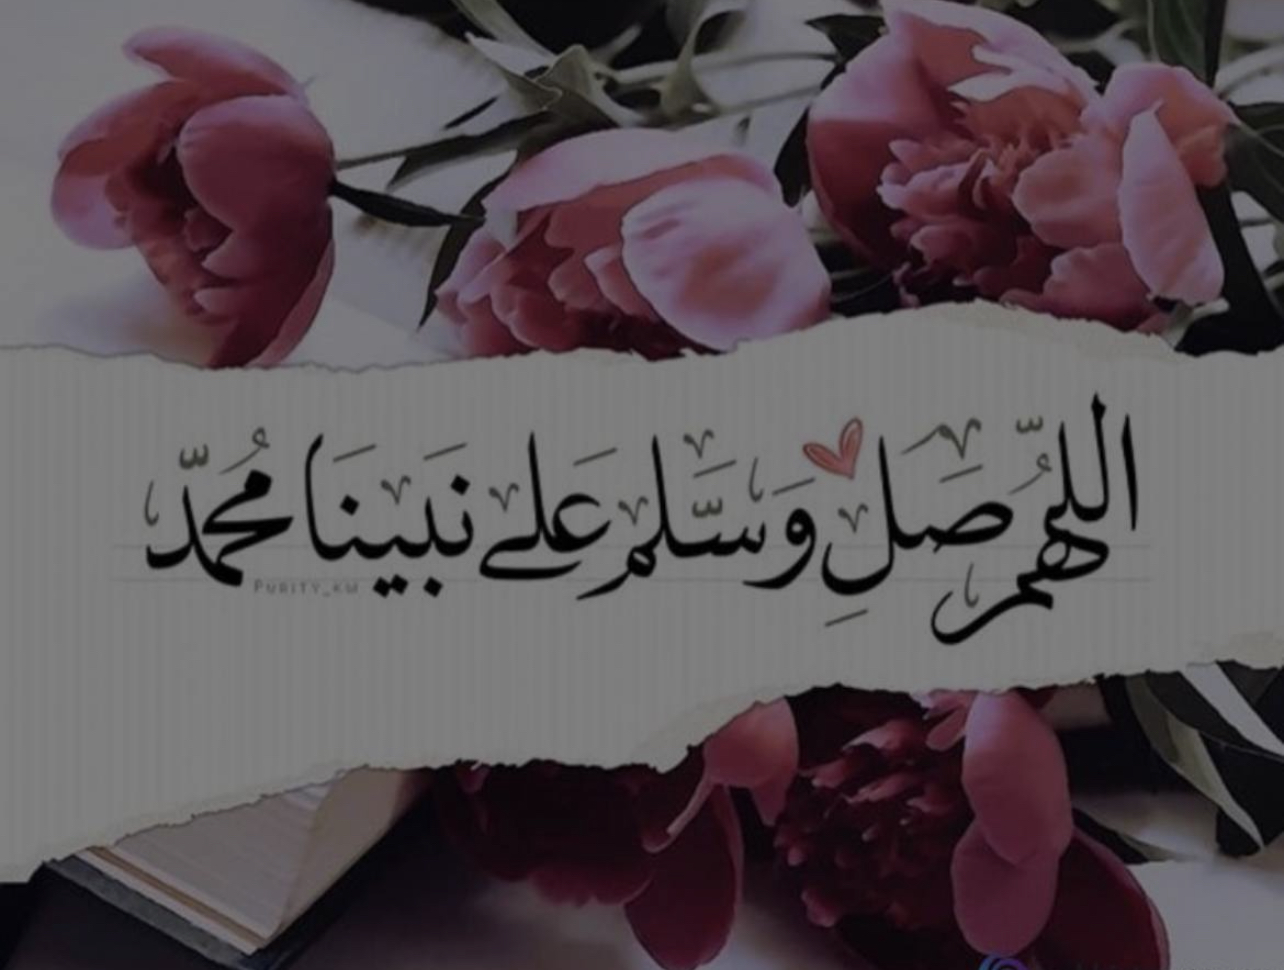 اللهم صلِ وَسَّلم علے نَبينَا محمدّ
PURITY_KW